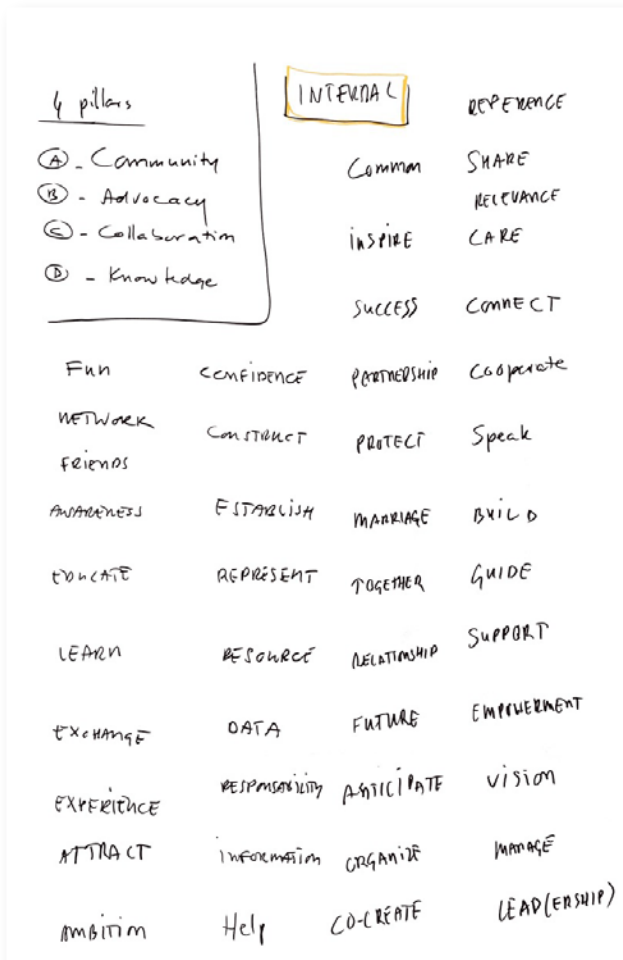 4 pillars
A - Community
B - Advocacy
C - Collaboration
D - Knowledge
INTERNAL
REFERENCE
Common SHARE
RELEVANCE
inSPIRE CARE
SUCCESS CONNECT
Fun CONFIDENCE PARTNERSHIP Cooperate
NETWORK CONSTRUCT PROTECT Speak
FRIENDS
AWARENESS ESTABLISH MARRIAGE BUILD
EDUCATE REPRESENT TOGETHER GUIDE
LEARN RESOURCE RELATIONSHIP SUPPORT
EXCHANGE DATA FUTURE EMPOWERMENT
EXPERIENCE RESPONSABILITY ANTICIPATE VISION
ATTRACT INFORMATION ORGANIZE MANAGE
AMBITION Help CO-CREATE LEAD(ERSHIP)